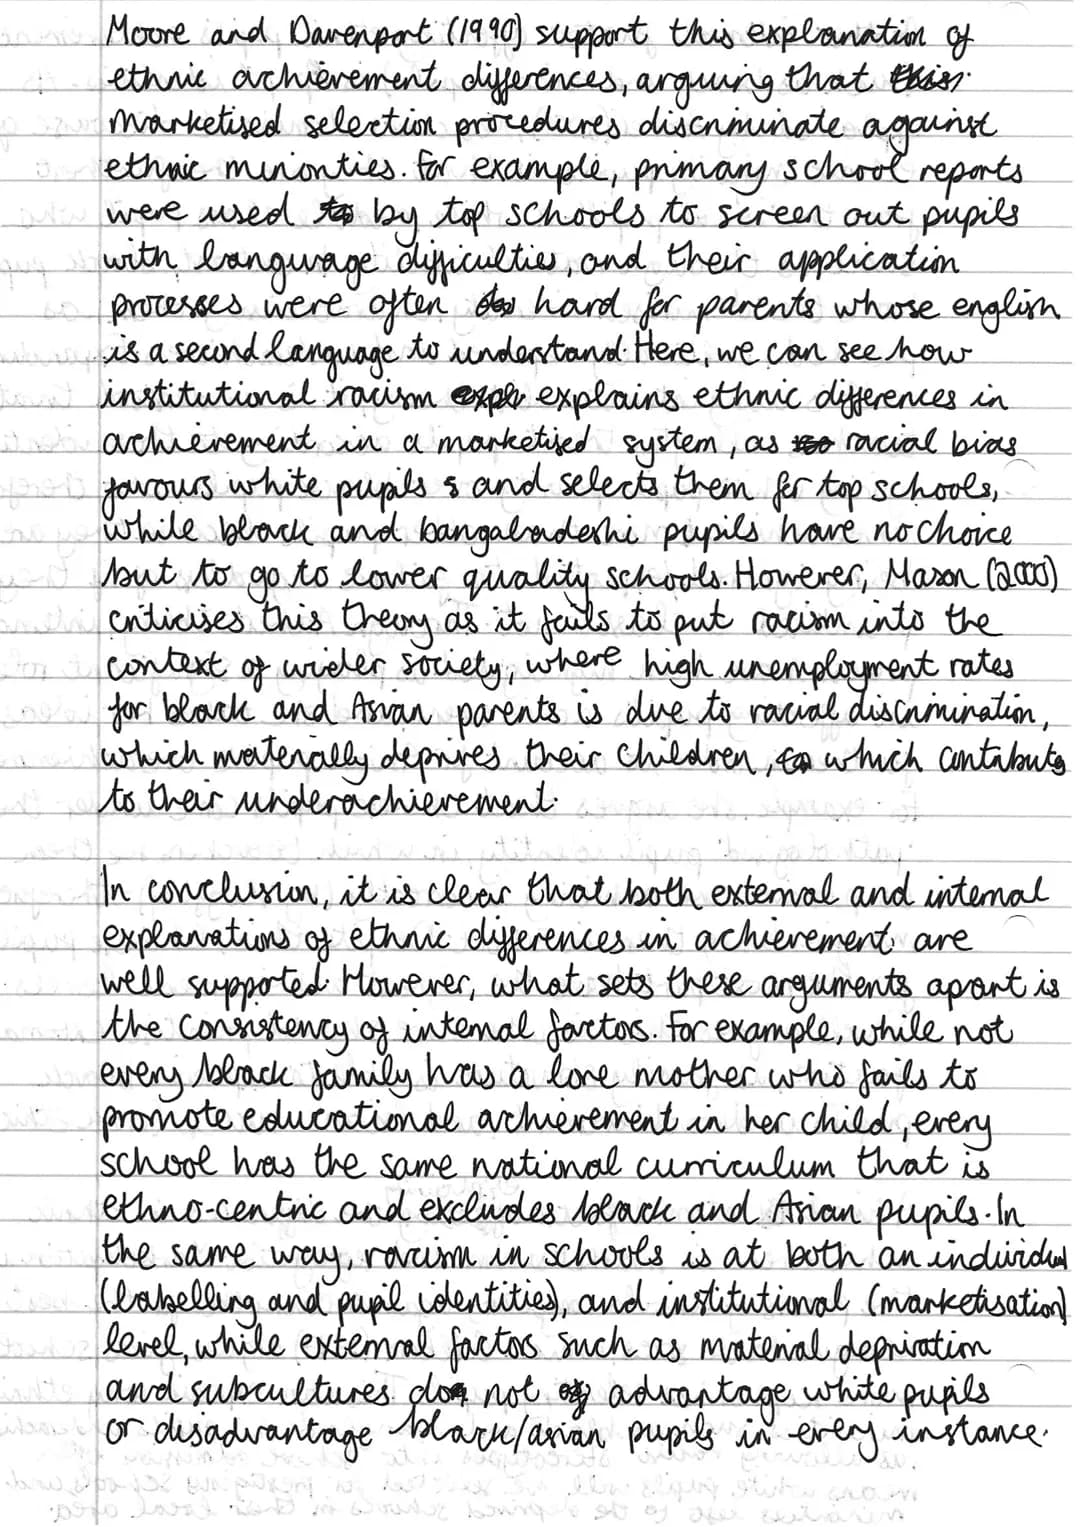 Moore and Davenport (1990) support this explanation of
ethnic achievement differences, arguing that this
marketised selection procedures discriminate against
ethnic minorities. For example, primary school reports
were used to by top schools to screen out pupils
with language difficulties, and their application
processes were often hard for parents whose english
is a second language to understand. Here, we can see how
institutional racism expla explains ethnic differences in
achievement in a marketised system, as racial bias
favours white pupils s and selects them for top schools,
while black and bangabadeshi pupils have no choice
but to go to lower quality schools. However, Mason (2000)
criticises this theory as it fails to put racism into the
context of wider society, where high unemployment rates
for black and Asian parents is due to racial discrimination,
which materially deprives their children, which contributes
to their underachievement.
In conclusion, it is clear that both external and internal
explanations of ethnic differences in achievement are
well supported. However, what sets these arguments apart is
the consistency of internal factors. For example, while not
every black family has a lone mother who fails to
promote educational achievement in her child, every
school has the same national curriculum that is
ethno-centric and excludes black and Asian pupils. In
the same way, racism in schools is at both an individual
(labelling and pupil identities), and institutional (marketisation)
level, while external factors such as material deprivation
and subcultures do not advantage white pupils
or disadvantage black/asian pupils in every instance.